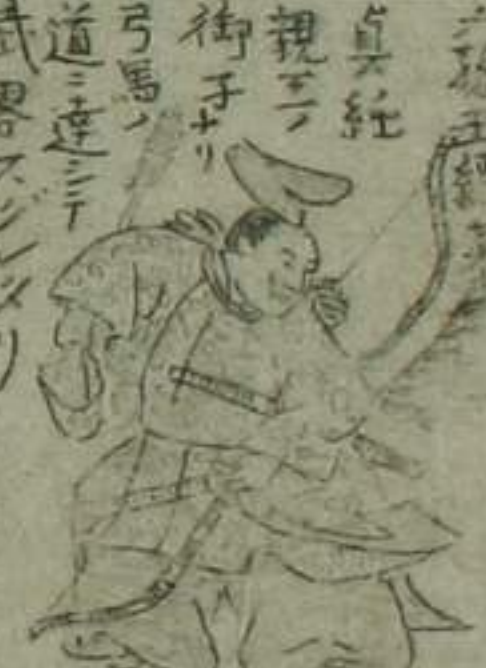 六孫王經基
貞純
親王ノ
御子ナリ
弓馬ノ
道ニ達シテ
武畧スグレタリ